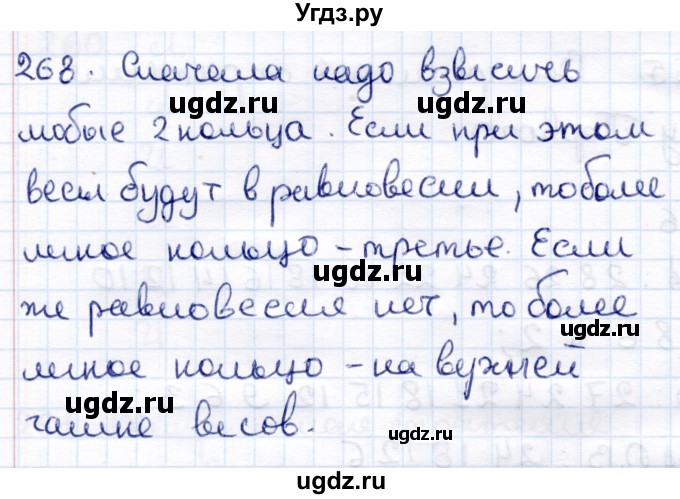 Угдз.ру
268. Сначала надо взвесить
любые 2 кольца. Если при этом
весы будут в равновесии, то более
легкое кольцо - третье. Если
же равновесия нет, то более
легкое кольцо - на верхней
чашке весов.
ugdz.ru ugdz.ru
ugdz.ru
ugdz.ru
ugdz.ru
ugdz.ru
ugdz.ru
ugdz.ru